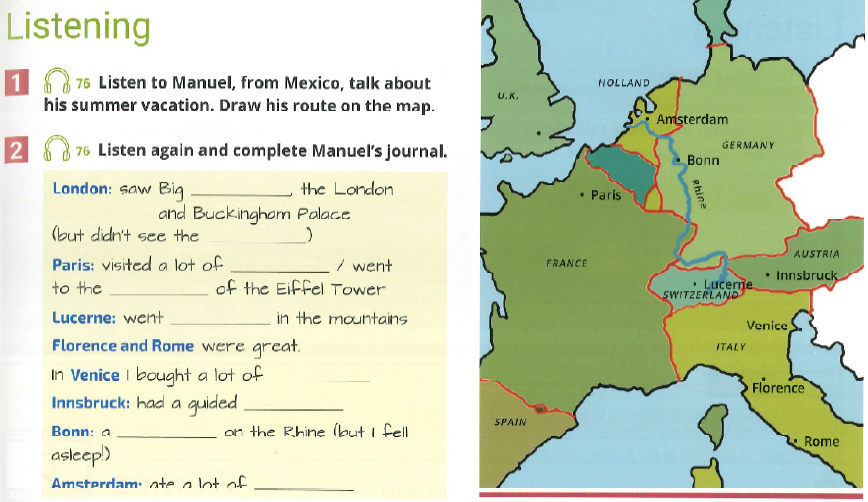 Listening
1 76 Listen to Manuel, from Mexico, talk about
his summer vacation. Draw his route on the map.
2 76 Listen again and complete Manuel's journal.
London: saw Big __________, the London
and Buckingham Palace
(but didn't see the __________)
Paris: visited a lot of __________ / went
to the __________ of the Eiffel Tower
Lucerne: went __________ in the mountains
Florence and Rome were great.
In Venice I bought a lot of __________
Innsbruck: had a guided __________
Bonn: a __________ on the Rhine (but I fell
asleep!)
Amsterdam: ate a lot of __________
U.K.
HOLLAND
Amsterdam
GERMANY
Bonn
Rhine
Paris
FRANCE
AUSTRIA
Innsbruck
Lucerne
SWITZERLAND
Venice
ITALY
Florence
SPAIN
Rome